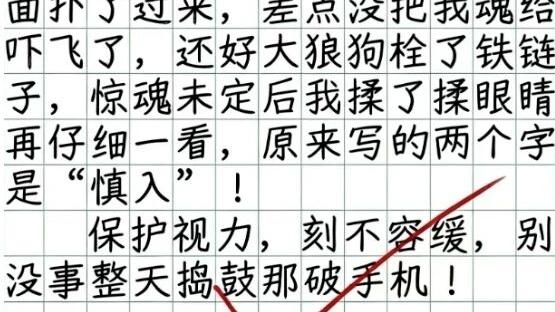 面扑了过来，差点没把我魂给
吓飞了，还好大狼狗栓了铁链
子，惊魂未定后我揉了揉眼睛
再仔细一看，原来写的两个字
是“慎入”！
保护视力，刻不容缓，别
没事整天捣鼓那破手机！